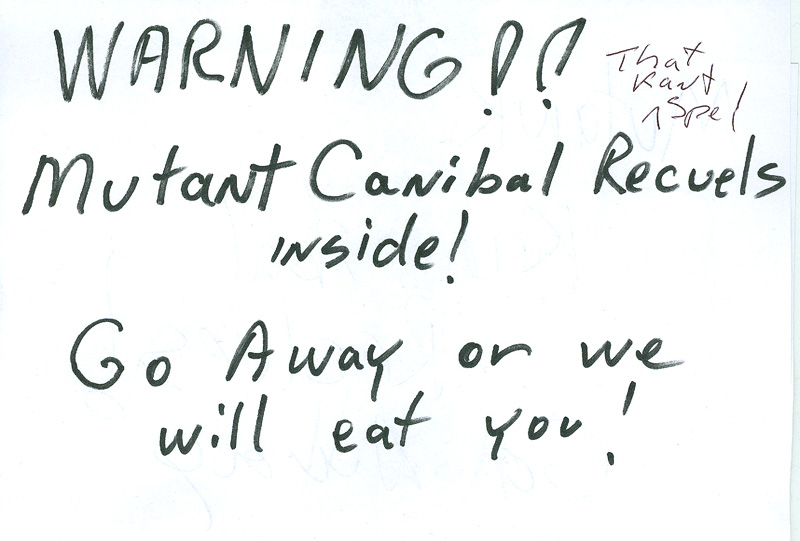 WARNING!!
That
Kant
Spel
Mutant Canibal Recuels
inside!
Go Away or we
will eat you!